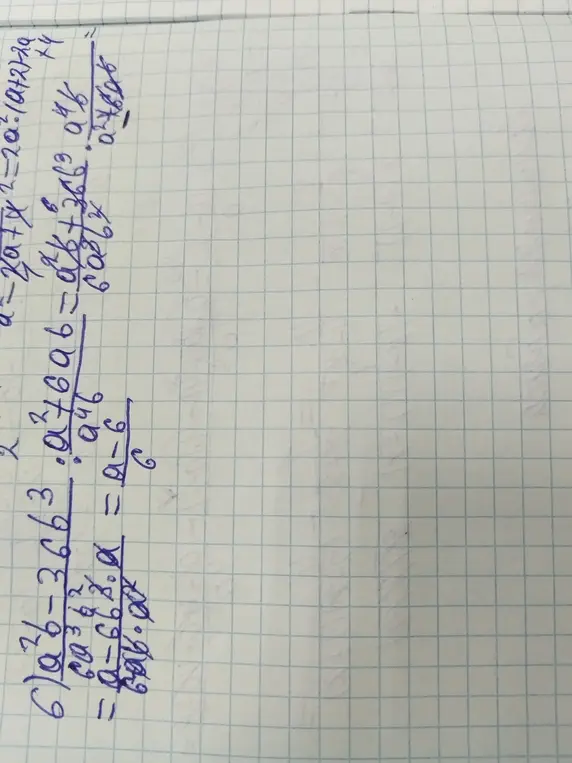 a² - 2a + 4 2 = 2a² · (a+2) · 2a
× 4
б) a²b - 36b³ / 6a³b² : a² + 6ab / a⁴b = a²b + 36b³ / 6a³b² · a⁴b / a² + 6ab =
= a - 6b · a / 6ab · a = a - 6 / 6